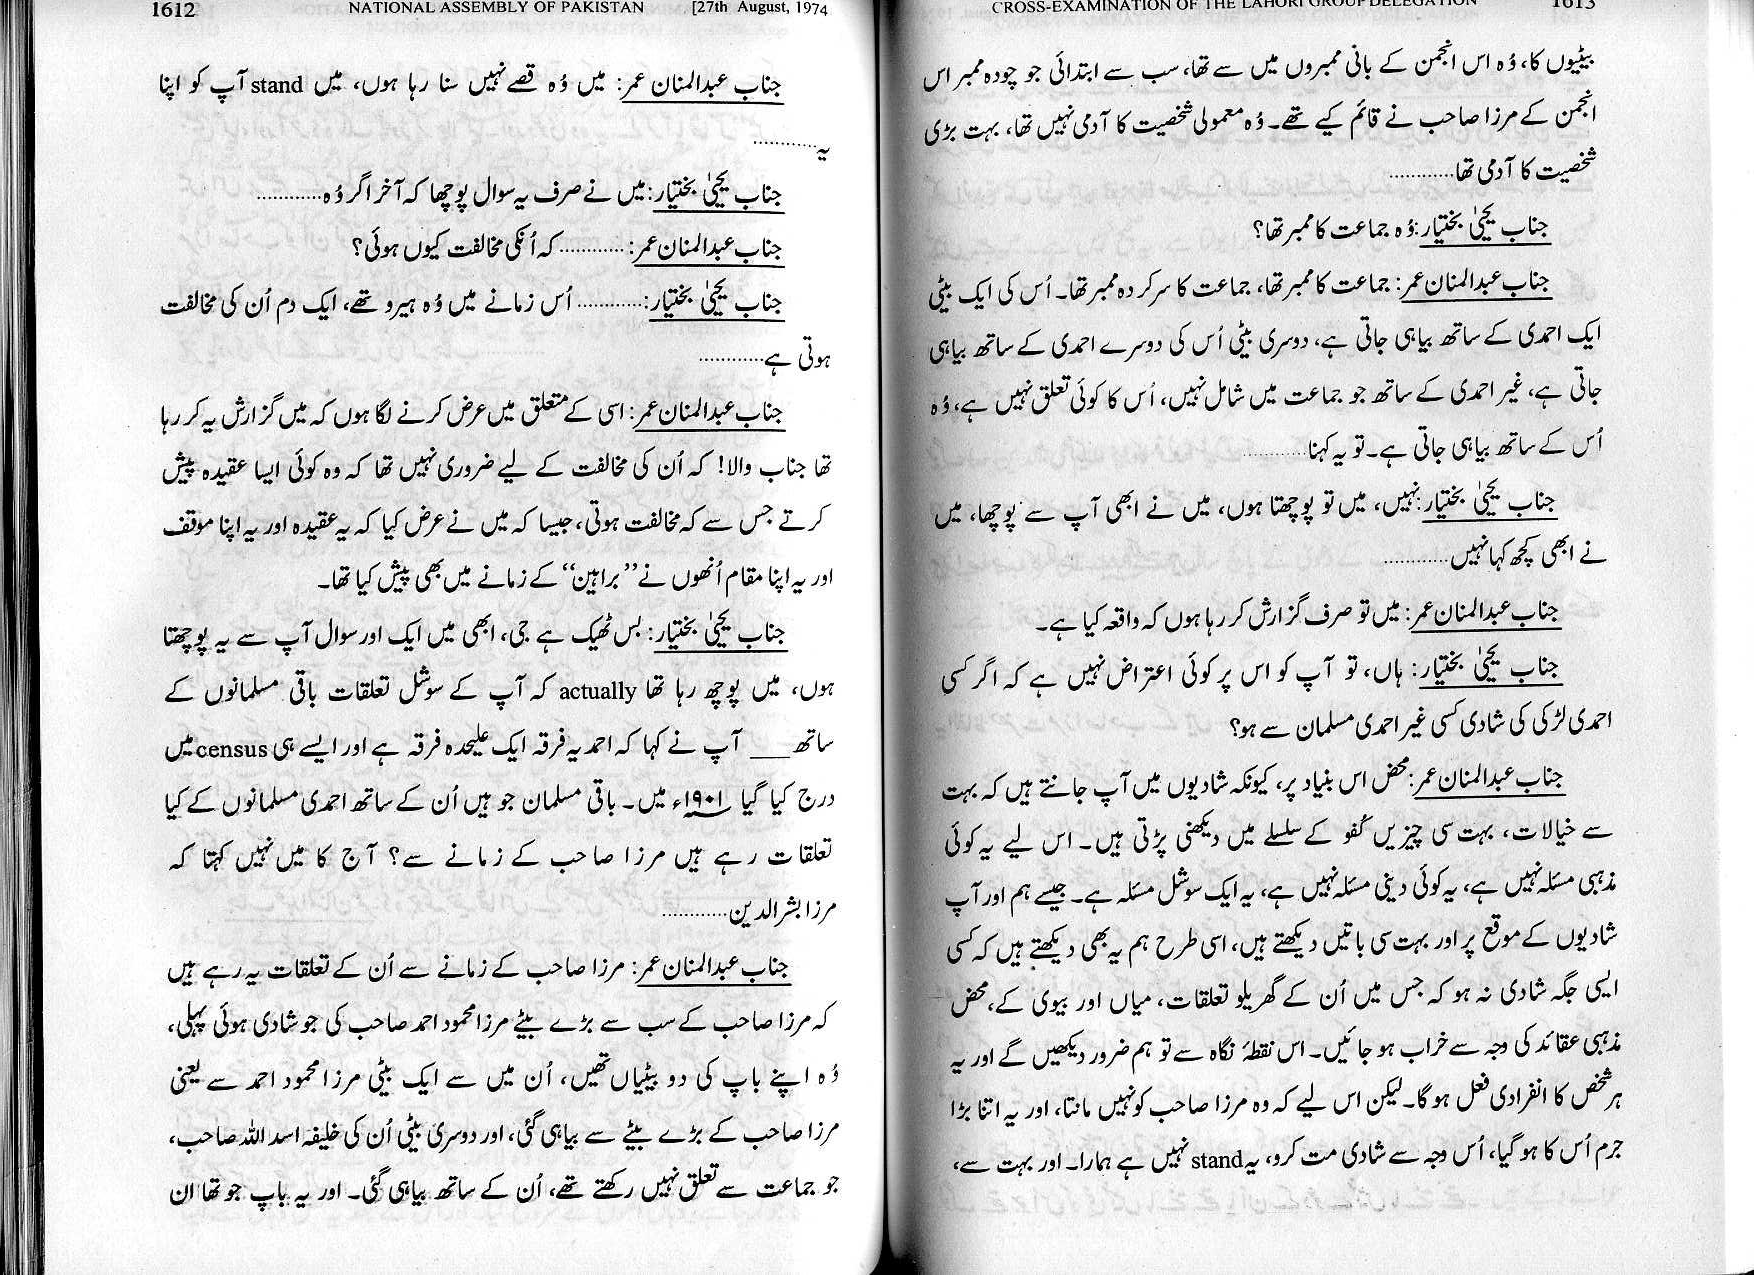 1612 NATIONAL ASSEMBLY OF PAKISTAN [27th August, 1974
جناب عبدالمنان عمر: میں وُہ قصے نہیں سنا رہا ہوں، میں stand آپ کو اپنا
یہ............
جناب یحیٰی بختیار: میں نے صرف یہ سوال پوچھا کہ آخر اگر وُہ............
جناب عبدالمنان عمر: ............ کہ اُنکی مخالفت کیوں ہوئی؟
جناب یحیٰی بختیار: ............ اُس زمانے میں وُہ ہیرو تھے، ایک دم اُن کی مخالفت
ہوتی ہے............
جناب عبدالمنان عمر: اسی کے متعلق میں عرض کرنے لگا ہوں کہ میں گزارش یہ کر رہا
تھا جناب والا! کہ اُن کی مخالفت کے لیے ضروری نہیں تھا کہ وہ کوئی ایسا عقیدہ پیش
کرتے جس سے کہ مخالفت ہوتی، جیسا کہ میں نے عرض کیا کہ یہ عقیدہ اور یہ اپنا موقف
اور یہ اپنا مقام اُنھوں نے ’’براہین‘‘ کے زمانے میں بھی پیش کیا تھا۔
جناب یحیٰی بختیار: بس ٹھیک ہے جی، ابھی میں ایک اور سوال آپ سے یہ پوچھتا
ہوں، میں پوچھ رہا تھا actually کہ آپ کے سوشل تعلقات باقی مسلمانوں کے
ساتھ___ آپ نے کہا کہ احمدیہ فرقہ ایک علیحدہ فرقہ ہے اور ایسے ہی census میں
درج کیا گیا ۱۹۰۱ء میں۔ باقی مسلمان جو ہیں اُن کے ساتھ احمدی مسلمانوں کے کیا
تعلقات رہے ہیں مرزا صاحب کے زمانے سے؟ آج کا میں نہیں کہتا کہ
مرزا بشرالدین............
جناب عبدالمنان عمر: مرزا صاحب کے زمانے سے اُن کے تعلقات یہ رہے ہیں
کہ مرزا صاحب کے سب سے بڑے بیٹے مرزا محمود احمد صاحب کی جو شادی ہوئی پہلی،
وُہ اپنے باپ کی دو بیٹیاں تھیں، اُن میں سے ایک بیٹی مرزا محمود احمد سے یعنی
مرزا صاحب کے بڑے بیٹے سے بیاہی گئی، اور دوسری بیٹی اُن کی خلیفہ اسد اللہ صاحب،
جو جماعت سے تعلق نہیں رکھتے تھے، اُن کے ساتھ بیاہی گئی۔ اور یہ باپ جو تھا ان
CROSS-EXAMINATION OF THE LAHORI GROUP DELEGATION 1613
بیٹیوں کا، وُہ اس انجمن کے بانی ممبروں میں سے تھا، سب سے ابتدائی جو چودہ ممبر اس
انجمن کے مرزا صاحب نے قائم کیے تھے۔ وُہ معمولی شخصیت کا آدمی نہیں تھا، بہت بڑی
شخصیت کا آدمی تھا............
جناب یحیٰی بختیار: وُہ جماعت کا ممبر تھا؟
جناب عبدالمنان عمر: جماعت کا ممبر تھا، جماعت کا سرکردہ ممبر تھا۔ اُس کی ایک بیٹی
ایک احمدی کے ساتھ بیاہی جاتی ہے، دوسری بیٹی اُس کی دوسرے احمدی کے ساتھ بیاہی
جاتی ہے، غیر احمدی کے ساتھ جو جماعت میں شامل نہیں، اُس کا کوئی تعلق نہیں ہے، وُہ
اُس کے ساتھ بیاہی جاتی ہے۔ تو یہ کہنا............
جناب یحیٰی بختیار: نہیں، میں تو پوچھتا ہوں، میں نے ابھی آپ سے پوچھا، میں
نے ابھی کچھ کہا نہیں............
جناب عبدالمنان عمر: میں تو صرف گزارش کر رہا ہوں کہ واقعہ کیا ہے۔
جناب یحیٰی بختیار: ہاں، تو آپ کو اس پر کوئی اعتراض نہیں ہے کہ اگر کسی
احمدی لڑکی کی شادی کسی غیر احمدی مسلمان سے ہو؟
جناب عبدالمنان عمر: محض اس بنیاد پر، کیونکہ شادیوں میں آپ جانتے ہیں کہ بہت
سے خیالات، بہت سی چیزیں کُفو کے سلسلے میں دیکھنی پڑتی ہیں۔ اس لیے یہ کوئی
مذہبی مسئلہ نہیں ہے، یہ کوئی دینی مسئلہ نہیں ہے، یہ ایک سوشل مسئلہ ہے۔ جیسے ہم اور آپ
شادیوں کے موقع پر اور بہت سی باتیں دیکھتے ہیں، اسی طرح ہم یہ بھی دیکھتے ہیں کہ کسی
ایسی جگہ شادی نہ ہو کہ جس میں اُن کے گھریلو تعلقات، میاں اور بیوی کے، محض
مذہبی عقائد کی وجہ سے خراب ہو جائیں۔ اس نقطۂ نگاہ سے تو ہم ضرور دیکھیں گے اور یہ
ہر شخص کا انفرادی فعل ہو گا۔ لیکن اس لیے کہ وہ مرزا صاحب کو نہیں مانتا، اور یہ اتنا بڑا
جرم اُس کا ہو گیا، اُس وجہ سے شادی مت کرو، یہ stand نہیں ہے ہمارا۔ اور بہت سے،